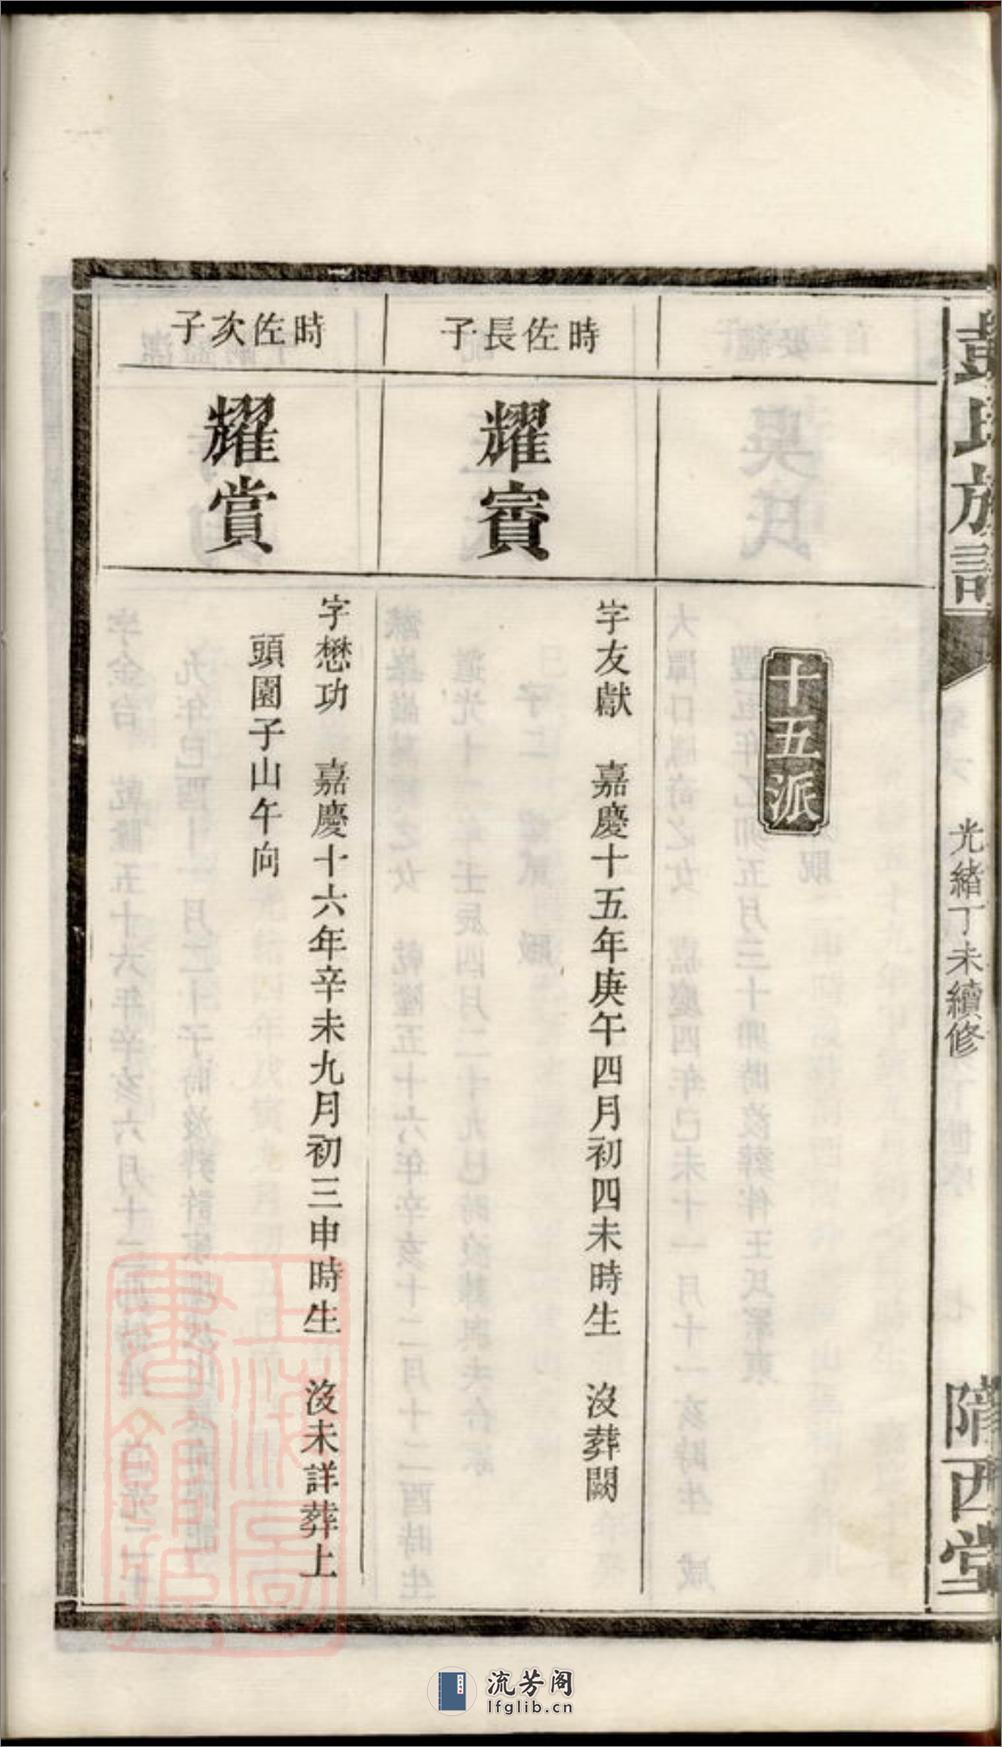 彭氏族譜
光緒丁未續修
隴西堂
十五派
時佐長子
耀賓
字友獻　嘉慶十五年庚午四月初四未時生　沒葬闕
時佐次子
耀賞
字懋功　嘉慶十六年辛未九月初三申時生　沒未詳葬上
頭園子山午向
流芳阁
lfglib.cn